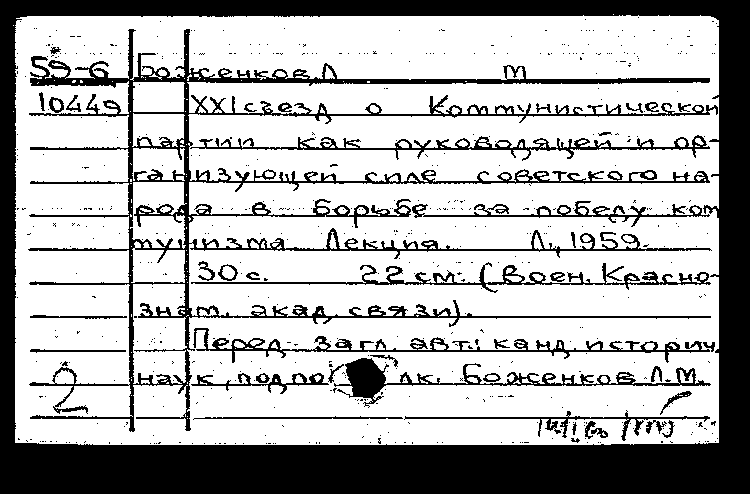 59-6 Боженков, Л М
10449 XXI съезд о Коммунистической
партии как руководящей и ор-
ганизующей силе советского на-
рода в борьбе за победу ком
мунизма. Лекция. Л., 1959.
30 с. 22 см. (Воен. Красно-
знам. акад. связи).
Перед загл. авт.: канд. историч.
наук, подполк. Боженков Л.М.
2